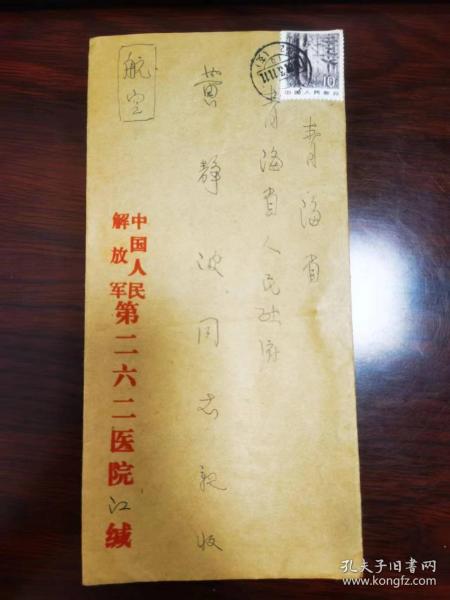 青海省
青海省人民政府
黄静波同志亲收
航空
中国人民
解放军
第二六二医院江缄
10
中国人民邮政
孔夫子旧书网
www.kongfz.com